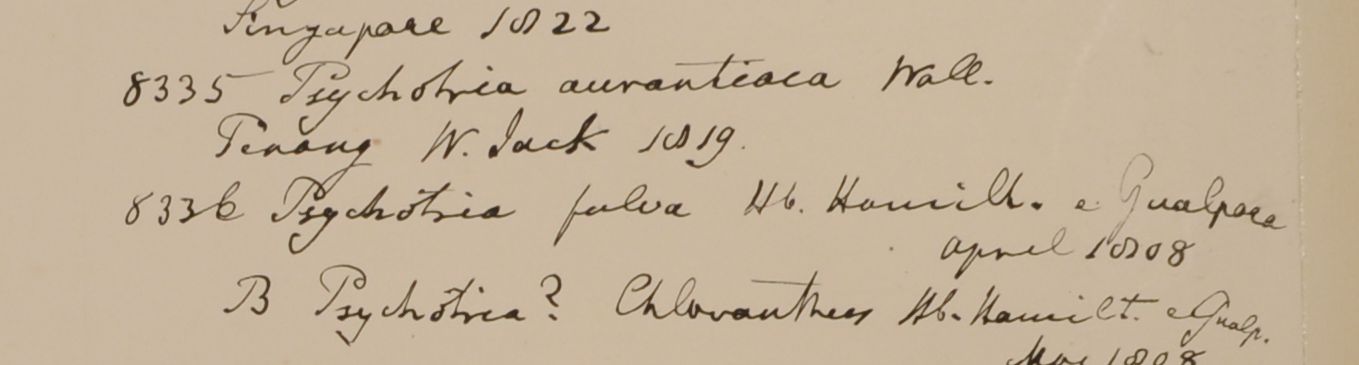 Singapore 1822
8335 Psychotria aurantiaca Wall.
Penang W. Jack 1819.
8336 Psychotria fulva Hb. Hamilt. e Gualpara
april 1808
B Psychotria? Chloranthus Hb. Hamilt. e Gualp.
1808